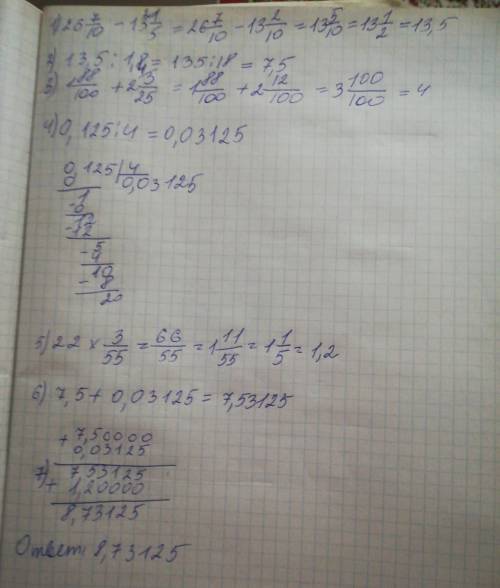 1) 26 7/10 - 13 1/5 = 26 7/10 - 13 2/10 = 13 5/10 = 13 1/2 = 13,5
2) 13,5 : 1,8 = 135 : 18 = 7,5
3) 1 88/100 + 2 3/25 = 1 88/100 + 2 12/100 = 3 100/100 = 4
4) 0,125 : 4 = 0,03125
0,125 | 4
0 0,03125
- 1
0
- 12
12
- 5
4
- 10
8
20
5) 22 × 3/55 = 66/55 = 1 11/55 = 1 1/5 = 1,2
6) 7,5 + 0,03125 = 7,53125
+ 7,50000
0,03125
7) 7,53125
+ 1,20000
8,73125
Ответ: 8,73125